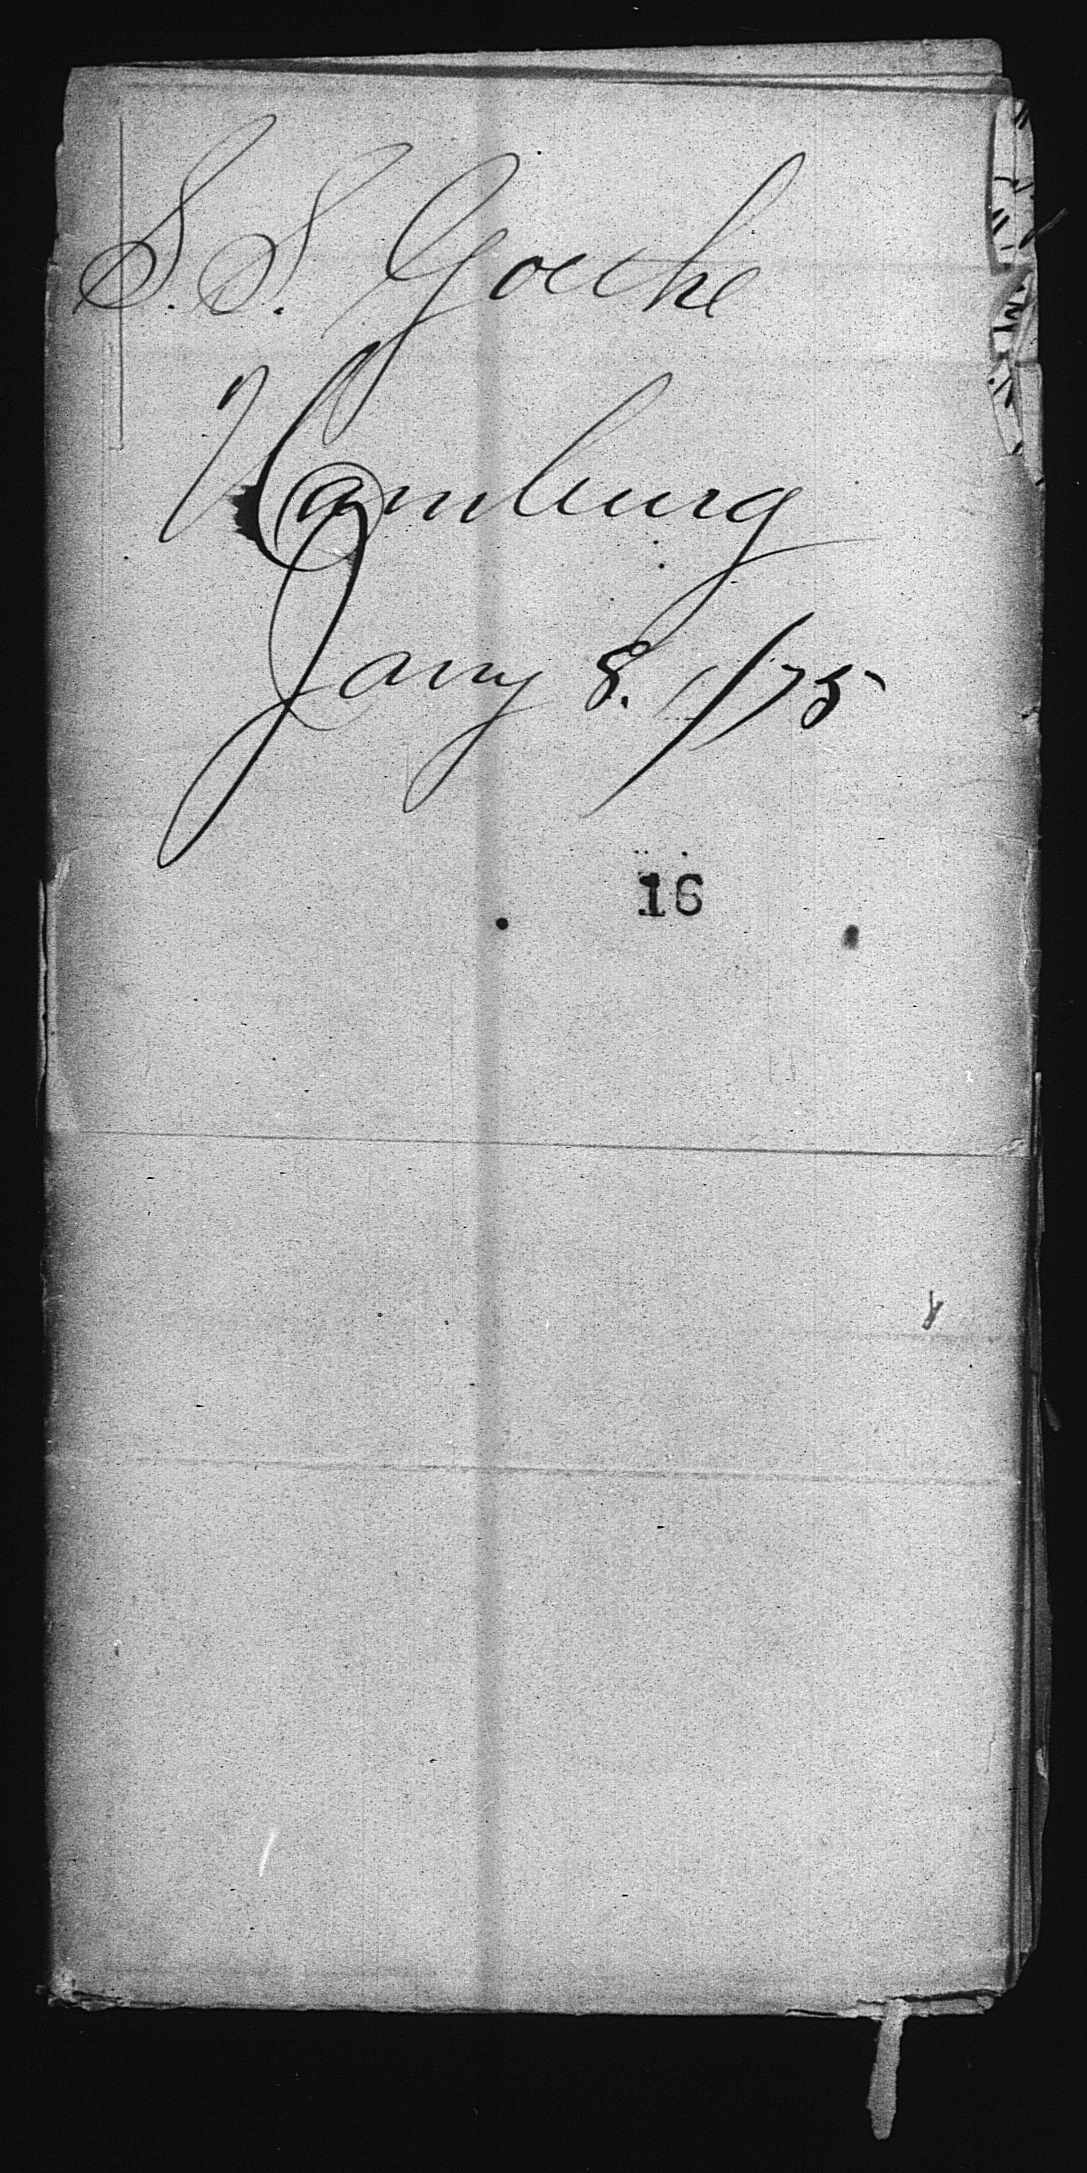 S. S. Goethe
Hamburg
Jany 8. /75
16